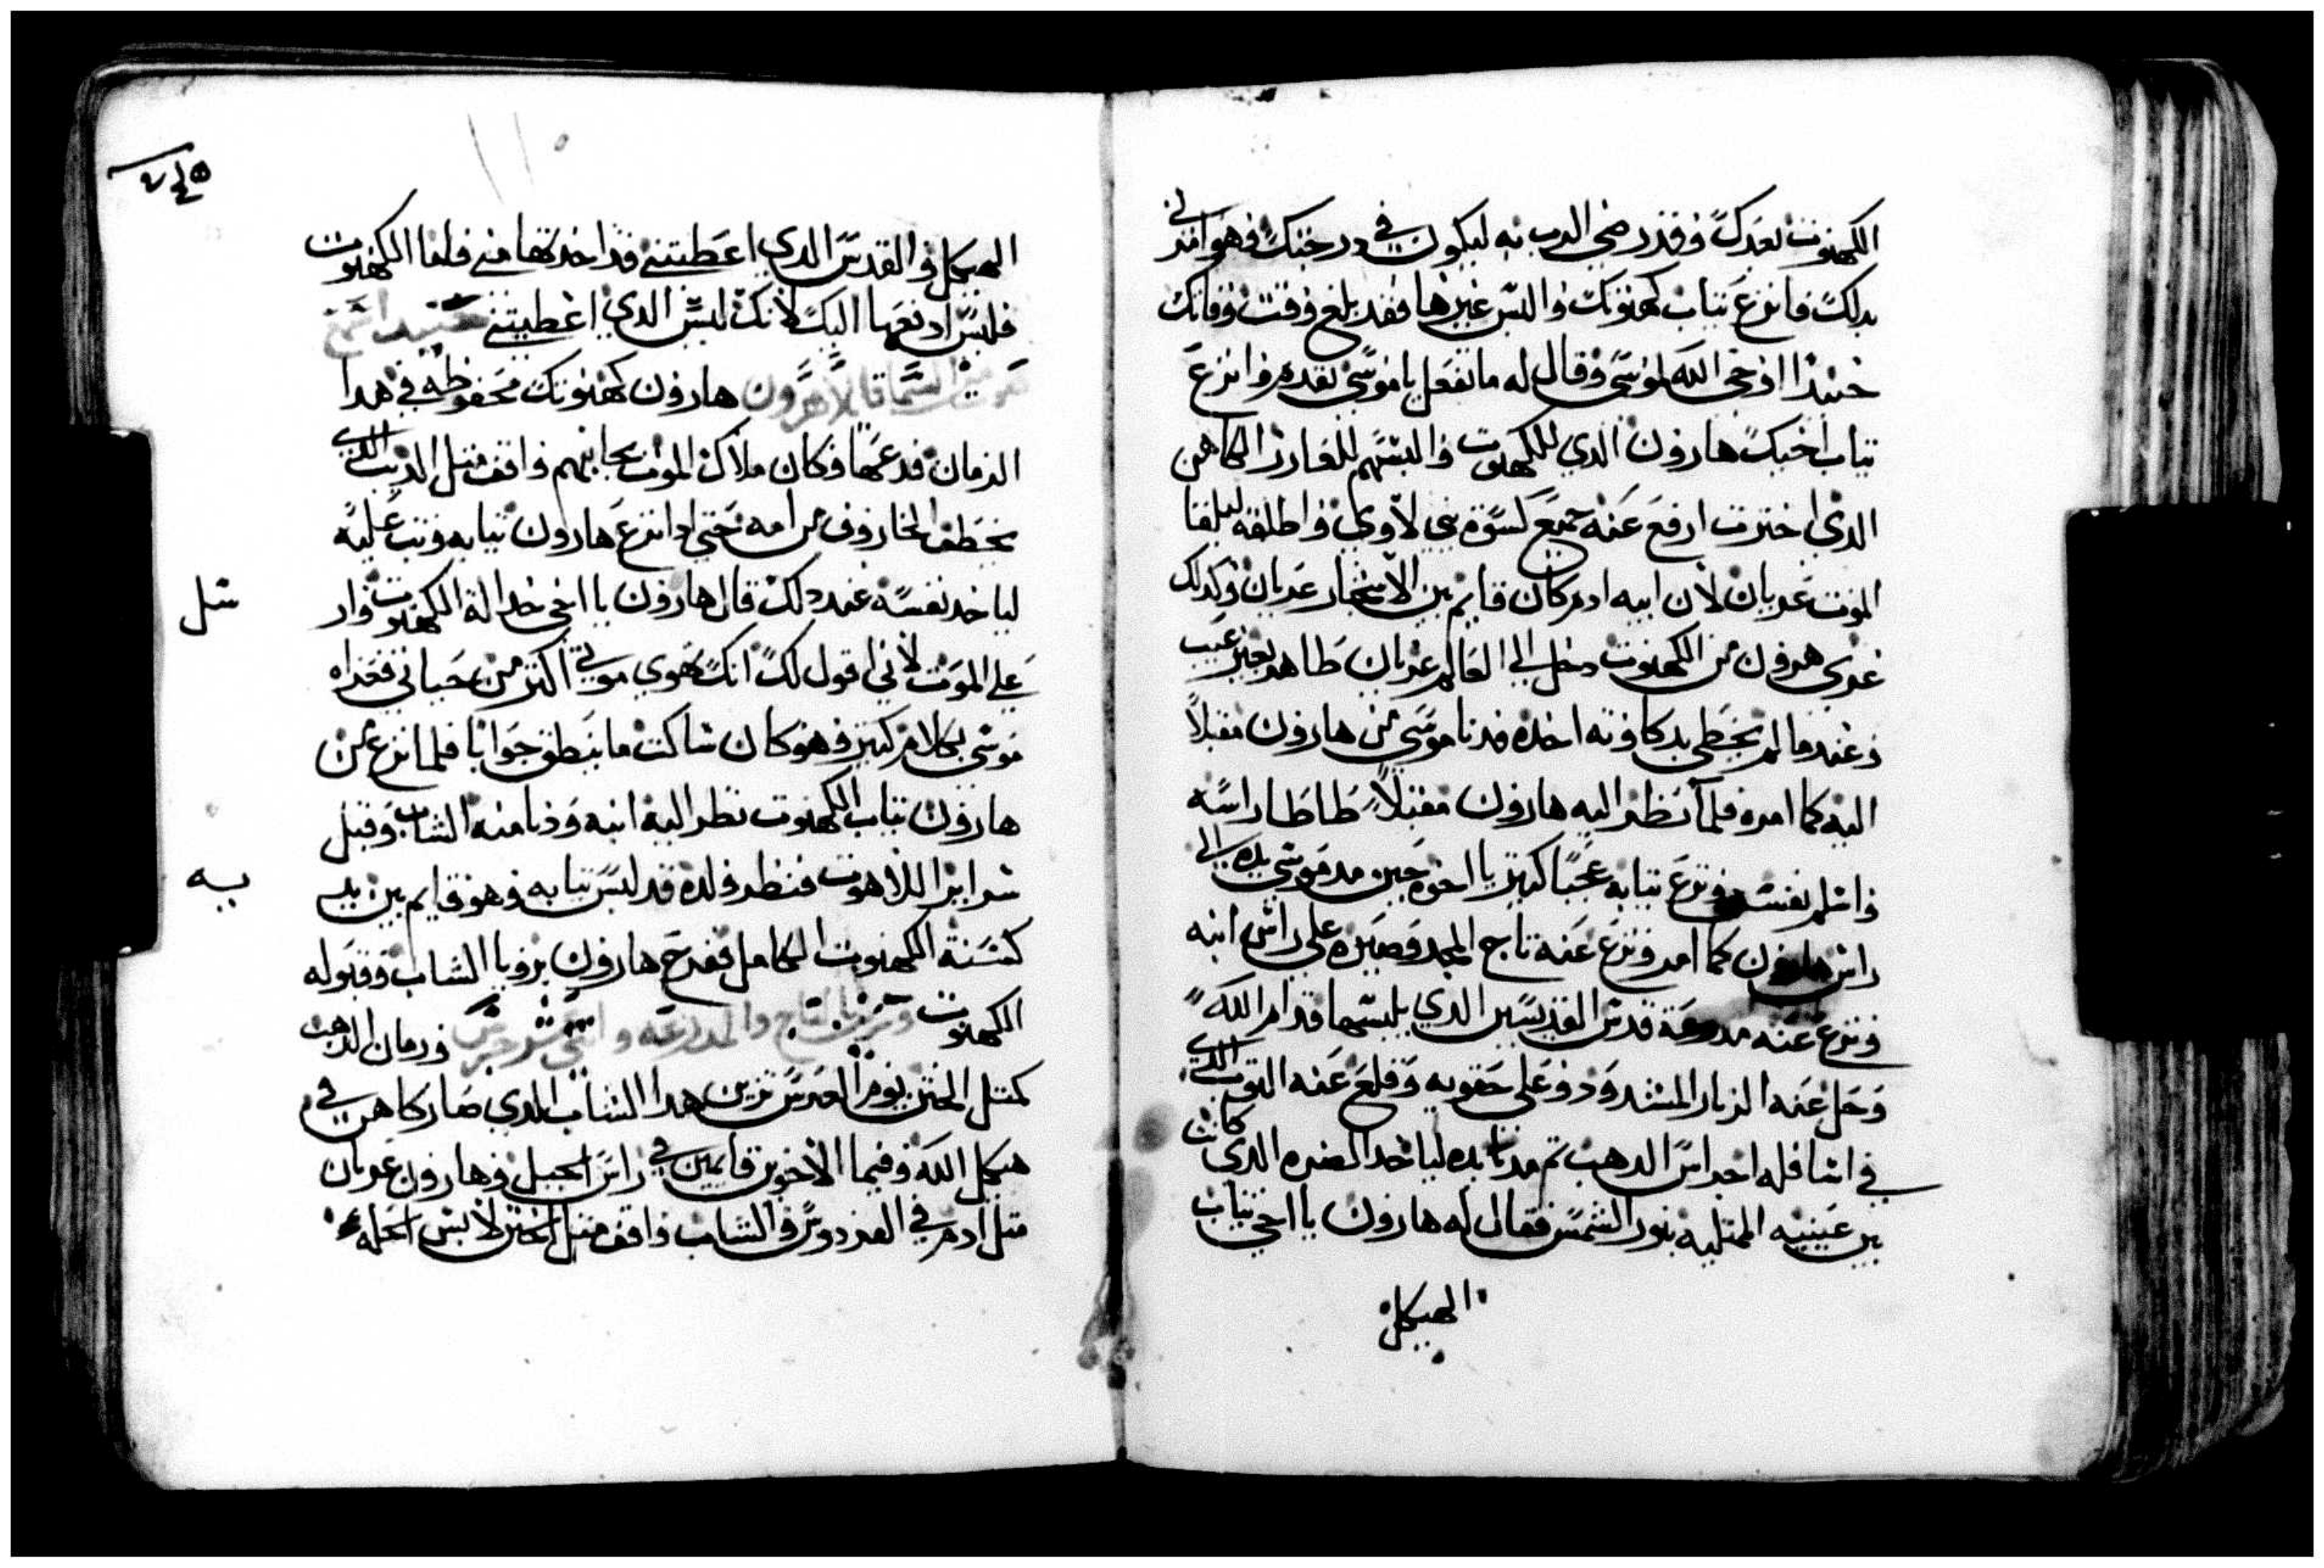 الكهنوت بعدك وقد رضي الرب به ليكون في درجتك وهو امرني
بدلك فانزع تياب كهنوتك والبس غيرها فقد بلغ وقت وفاتك
حينيدا اوحي الله لموسي وقال له ما تفعل يا موسي تقدم وانزع
تياب اخيك هارون الدي للكهنوت والبسهم للعازر الكاهن
الدي اخترت ارفع عنه جميع كسوة بني لاوي واطلقه ليلقا
الموت عريان لان ابيه ادم كان قايم بين الاشجار عريان وكدلك
عري هرون من الكهنوت دخل الي العالم عريان طاهر بغير عيب
وعندما لم يخطي بدكاوته اخده فدنا موسي من هارون مقبلاً
اليه كما امره فلما نظر اليه هارون مقبلاً طاطا راسه
واسلم نفسه ونزع تيابه عجبا كبير يا اخوه حين مد موسي يده الي
راس هارون كما امر ونزع عنه تاج المجد وصيره علي راس ابنه
ونزع عنه مدرعة قدس القديسين الدي يلبسها قدام الله
وحل عنه الزنار المشدود علي حقويه وقلع عنه التوب الدي
في اسافله اجراس الدهب تم مد يده لياخد الصره الدي كانت
بين عينيه الممتليه بنور الشمس فقال له هارون يا اخي تياب
الهيكل
الهيكل والقدس الدي اعطيتني قد اخدتها مني فاما الكهنوت
فليس ادفعها اليك لانك ليس الدي اعطيتني
السما قايلاً هرون هارون كهنوتك محفوظه في هدا
الزمان فدعها وكان ملاك الموت بجانبهم واقف متل الديب الدي
يخطف الخاروف من امه حتي ادا نزع هارون تيابه وتب عليه
لياخد نفسه عند دلك قال هارون يا اخي خد الة الكهنوت وار
علي الموت لاني اقول لك انك تهوي موتي اكتر من حياتي فعزاه
موسي بكلام كبير وهو كان ساكت ما ينطق جوابا فلما نزع من
هارون تياب الكهنوت نظر اليه ابنه ودنا منه الشاب وقبل
سراير اللاهوت فنظر ولده قد لبس تيابه وهو قايم بين يديه
كسنة الكهنوت الكامل ففرح هارون برويا الشاب وقبوله
الكهنوت وتزين بالتاج والمدرعه واتني عشر جرس ورمان الدهب
كمتل الختن يوم العرس تزين هدا الشاب الدي صار كاهن في
هيكل الله وفيما الاخوين قايمين في راس الجبل وهارون عريان
متل ادم في الفردوس والشاب واقف متل الختن لابس الحله